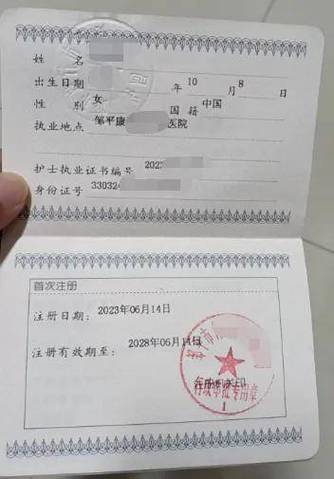 姓 名
出生日期 年 10 月 8 日
性 别 女 国 籍 中国
执业地点 邹平康 医院
护士执业证书编号 202
身份证号 33032
首次注册
注册日期: 2023年06月14日
注册有效期至: 2028年06月14日
注册机关印
行政审批专用章
1